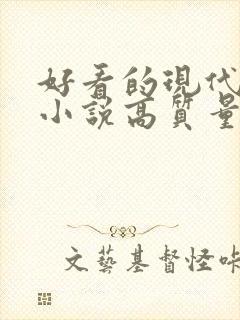 好看的現代
小說高質量
文藝基督怪咔